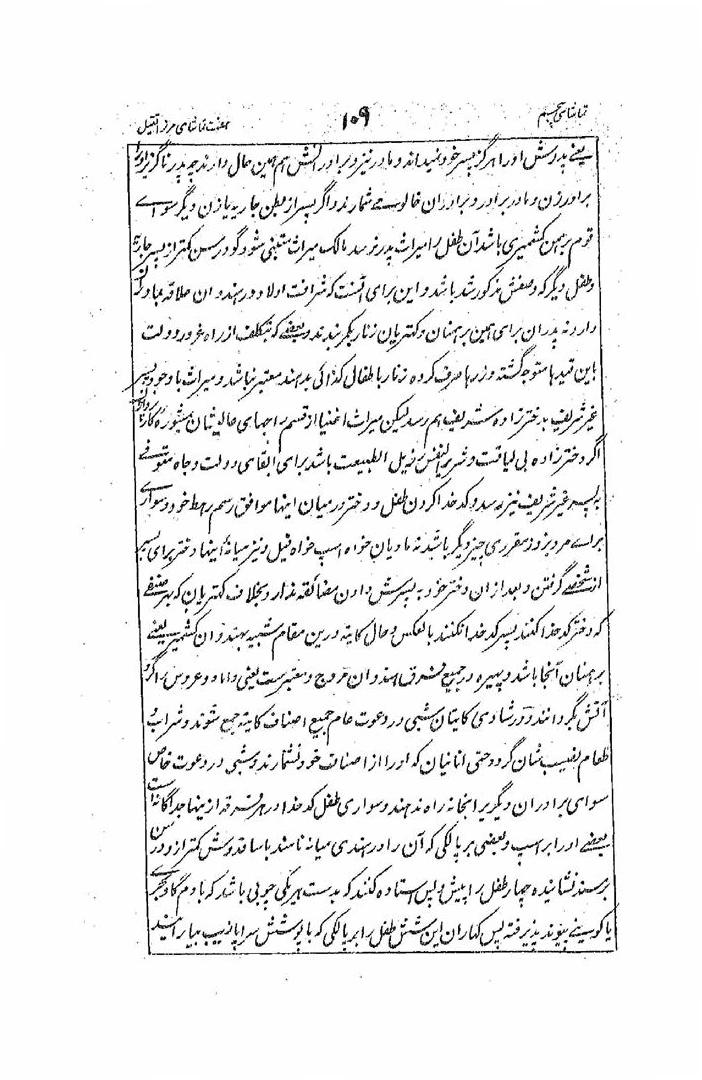 تماشای پنجم ۱۰۹ هفت تماشای مرزا قتیل
یعنے پدرش اورا هرگز پسر خود نمیداند و مادر نیز و برادرانش هم همین حال دارند چه پدر ناگزیر اورا
برادر زن و مادر برادر و برادران خالو میشمارند و اگر پسر از بطن جاریه یا زن دیگر سواے
قوم برهمن کشمیری باشد آن طفل را میراث پدر نرسد مالک میراث متبنی شود گو در سن کمتر از پسر جاریه
و طفل دیگر که وصفش مذکور شد باشد و این برای آنست که شرافت اولاد در هندوان علاقه بمادر
دارد نه پدران برای همین برهمنان و کهتریان زنار بکمر نبندند و بعضے که بتکلف از راه غرور دولت
باین قیدها متوجه گشته و زرها صرف کرده زنار باطفالی کذائی بدهند معتبر نباشد و میراث با وجود پسر
غیر شریف بدخترزاده شریف هم رسد لیکن میراث اغنیا از قسم راجهای عالیشان بمشوره کارپردازان
اگر دخترزاده بی لیاقت و شریر النفس رذیل الطبیعت باشد برای ابقای دولت و جاه متوفے
به پسر غیر شریف نیز رسد و کدخدا کردن طفل و دختر در میان اینها موافق رسم ربط خود و سوارے
براے هر دو روز مقرری چیز دیگر باشد نه مادیان خواه اسپ خواه فیل و نیز میانه اینها دختر برای پسر
از شخصے گرفتن و بعد ازان دختر خود به پسرش دادن مضائقه ندارد بخلاف کهتریان که بهر صنفے
که دختر کدخدا کنند پسر کدخدا نکنند بالعکس و حال کایته درین مقام شبیه بهندوان کشمیر یعنے
برهمنان آنجا باشد و پهیره در جمیع فرق هندوان مروج و معتبرست یعنی داماد و عروس را گرد
آتش بگردانند و در شادی کایتان شبی در دعوت عام جمیع اصناف کایته جمع شوند و شراب و
طعام نصیب شان گردد حتی انانیان که او را از اصناف خود نشمارند و شبی در دعوت خاص
سوای برادران دیگریرا نجانه راه ندهند و سواری طفل کدخدا در هر فرقه ازینها جداگانه است
بعضے اورا بر اسپ و بعضی بر پالکی که آن را در هندی میانه نامند با ساقدوش کمتر از و در سن
برسند نشانیده چهار طفل را پیش و پس استاده کنند که بدست هر یکی چوبی باشد که با دم گاو بحرے
یا کوہے پیوند پذیرفته پس کهاران این شش طفل را بر پالکی که با پوشش سراپا زیب بیارایند